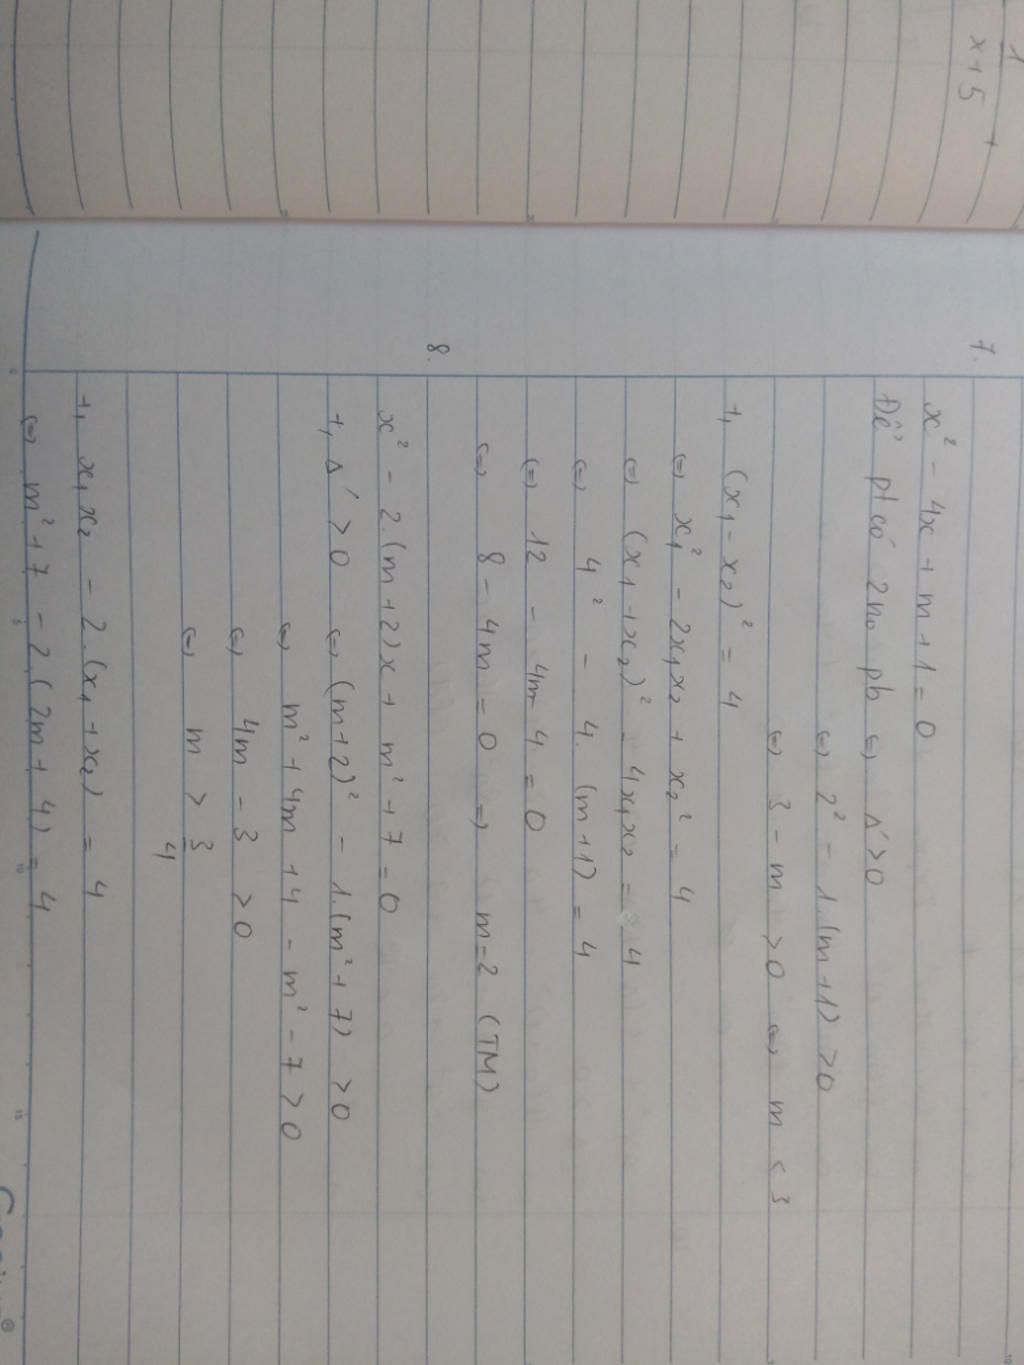 1
x+5
+
7.
x² - 4x + m + 1 = 0
Để pt có 2 no pb ⇔ Δ' > 0
⇔ 2² - 1.(m+1) > 0
⇔ 3 - m > 0 ⇔ m < 3
+, (x₁ - x₂)² = 4
⇔ x₁² - 2x₁x₂ + x₂² = 4
⇔ (x₁ + x₂)² - 4x₁x₂ = 4
⇔ 4² - 4.(m+1) = 4
⇔ 12 - 4m - 4 = 0
⇔ 8 - 4m = 0 ⇒ m = 2 (TM)
8.
x² - 2.(m+2)x + m² + 7 = 0
+, Δ' > 0 ⇔ (m+2)² - 1.(m² + 7) > 0
⇔ m² + 4m + 4 - m² - 7 > 0
⇔ 4m - 3 > 0
⇔ m > 3/4
+, x₁x₂ - 2.(x₁ + x₂) = 4
⇔ m² + 7 - 2.(2m + 4) = 4